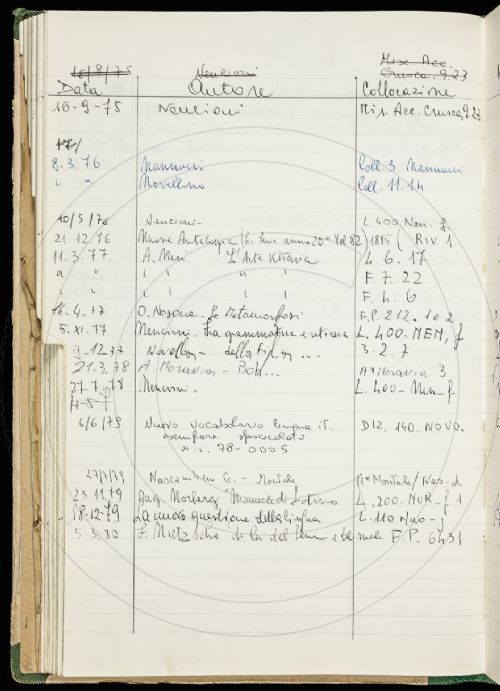 16/9/75 Nencioni Misc. Acc.
Crusca. 9.23
Data Autore Collocazione
16-9-75 Nencioni Mis. Acc. Crusca 9.23
17/
8.3.76 Mannucci Coll. 3 Mannucci
" " Novellino Coll. 11.14
10/5/76 Nencioni- L. 400. Nen. f.
21.12.76 Nuova Antologia anno 20° Vol 82 1885 ( RIV 1
11.3.77. A. Neri L'Arte 4. 6. 17
" " " " " " F. 7. 22
" " " " " " F. 4. 6
16.4.77 O. Nasone. Le Metamorfosi F.P. 212. 1 e 2
5.XI.77 Nencioni. Fra grammatica e retorica L. 400. NEN, f
9.12.77 Novella - della ... 3. 2. 7
21.3.78 A. Moravia - ... A* Moravia 3
27.7.78 Nencioni. L. 400 - Nen - f
6/6/79 Nuovo vocabolario lingua it. DIZ. 140. NOVO.
esemplare spaccato
n. i. 78-0005
27/7/79 Nascimbeni G. - Montale A* Montale/Nas. d
23.11.79 Manuale di L. 200 - MOR - f 1
18-12-79 La nuova questione della lingua L 110 Nuo - j
5.3.80 F. Nietzsche di la del bene e del male F.P. 6431